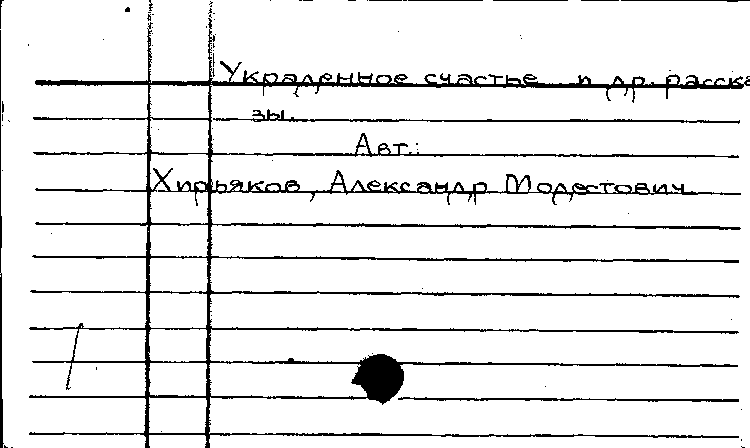 Украденное счастье и др. расска
зы.
Авт.:
Хирьяков, Александр Модестович